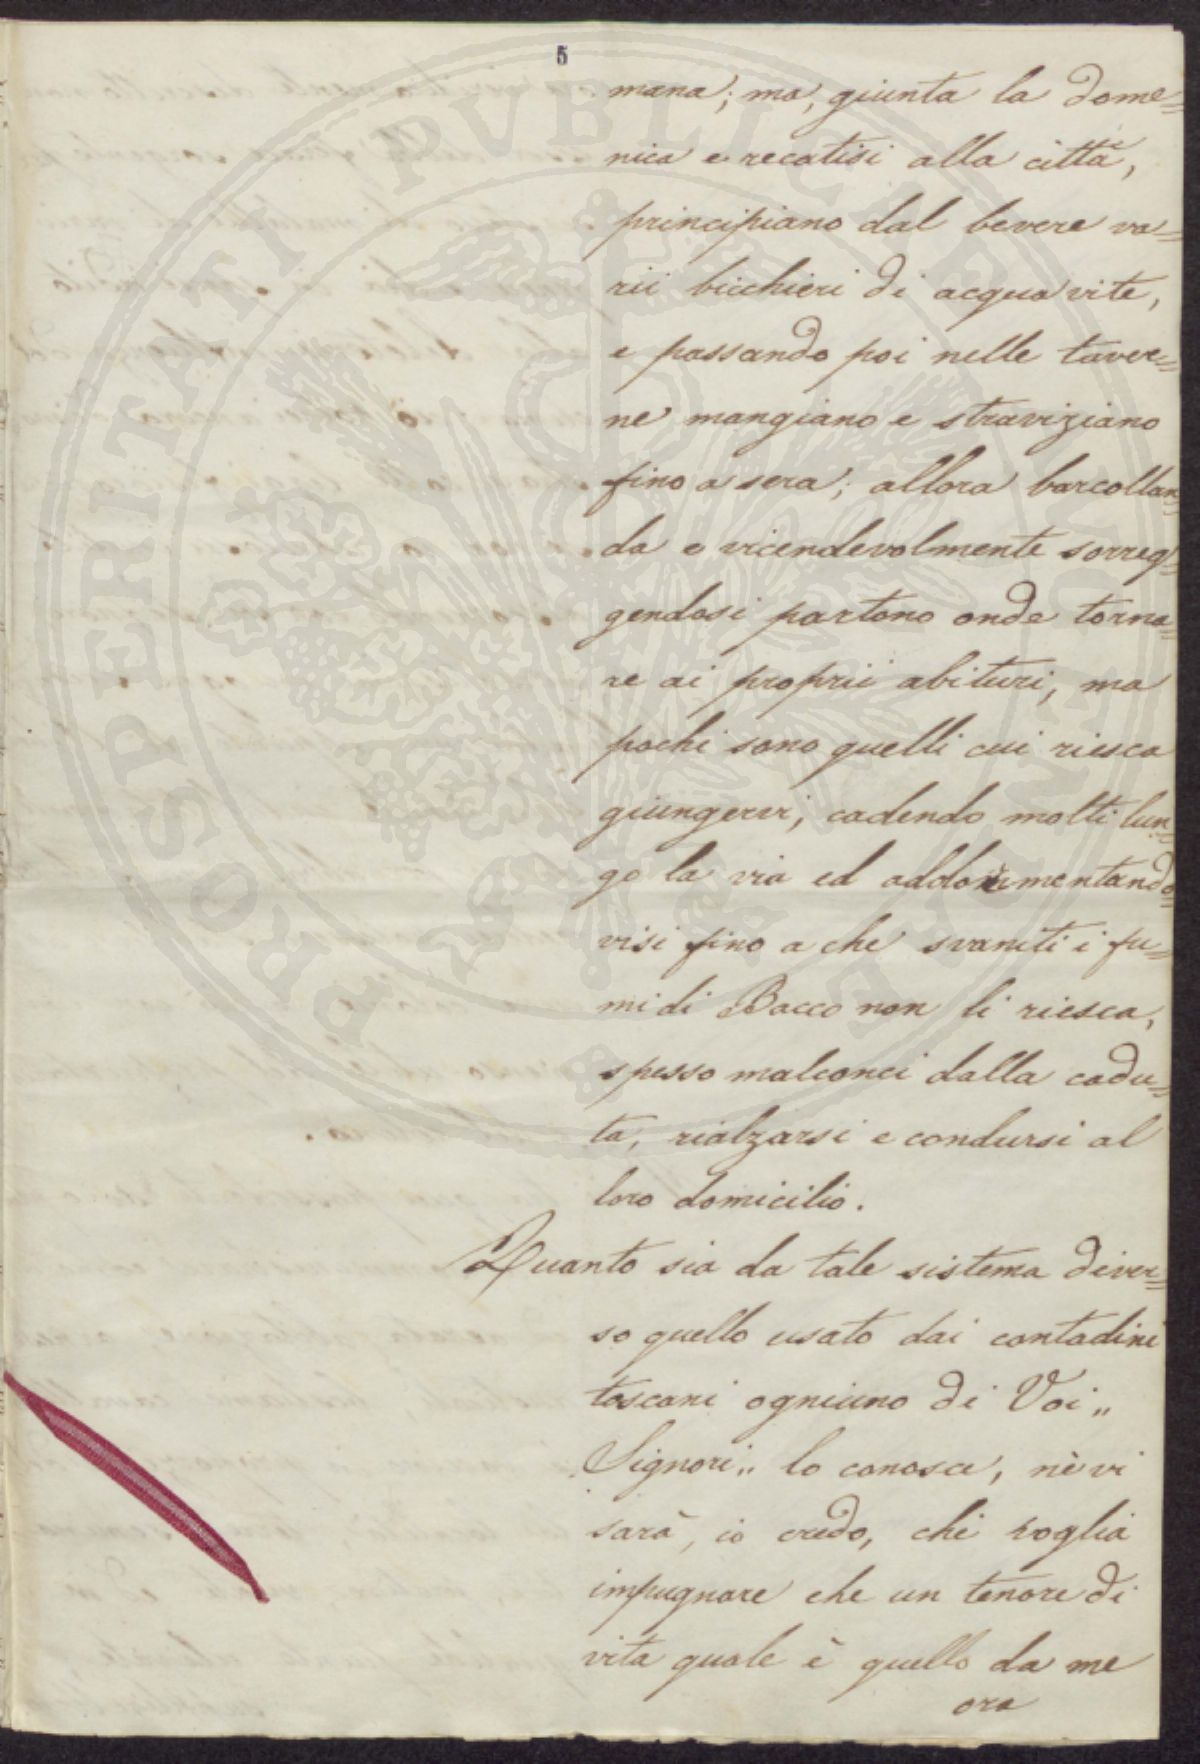 5
mana; ma, giunta la dome=
nica e recatisi alla città,
principiano dal bevere va=
rii bicchieri di acqua vite,
e passando poi nelle taver=
ne mangiano e straviziano
fino a sera; allora barcollan=
do e vicendevolmente sorreg=
gendosi partono onde torna=
re ai proprii abituri, ma
pochi sono quelli cui riesca
giungervi, cadendo molti lun=
go la via ed addormentando=
visi fino a che svaniti i fu=
mi di Bacco non li riesca,
spesso malconci dalla cadu=
ta, rialzarsi e condursi al
loro domicilio.
Quanto sia da tale sistema diver=
so quello usato dai contadini
toscani ogniuno di Voi „
Signori „ lo conosce, nè vi
sarà, io credo, chi voglia
impugnare che un tenore di
vita quale è quello da me
ora
PROSPERITATI PVBLICAE